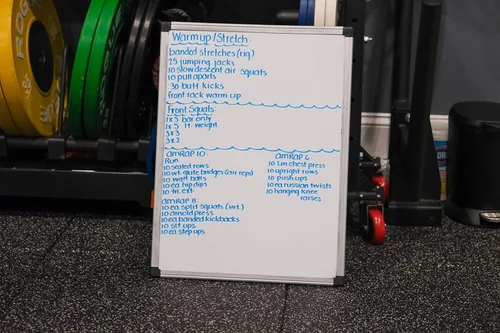 Warmup/Stretch
banded stretches (rig)
25 jumping jacks
10 slow descent air squats
10 pull aparts
30 butt kicks
front rack warm up
Front Squats:
1x5 bar only
1x5 lt. weight
3x3
3x2
AMRAP 10:
Run
10 seated rows
10 wt. glute bridges (air reps)
10 wall balls
10 ea. hip dips
10 tri. ext.
AMRAP 8:
10 ea. split squats (wt.)
10 arnold press
10 ea. banded kickbacks
10 sit ups
10 ea. step ups
AMRAP 6:
10 l.m chest press
10 upright rows
10 push ups
10 ea. russian twists
10 hanging knee
raises
ROGUE